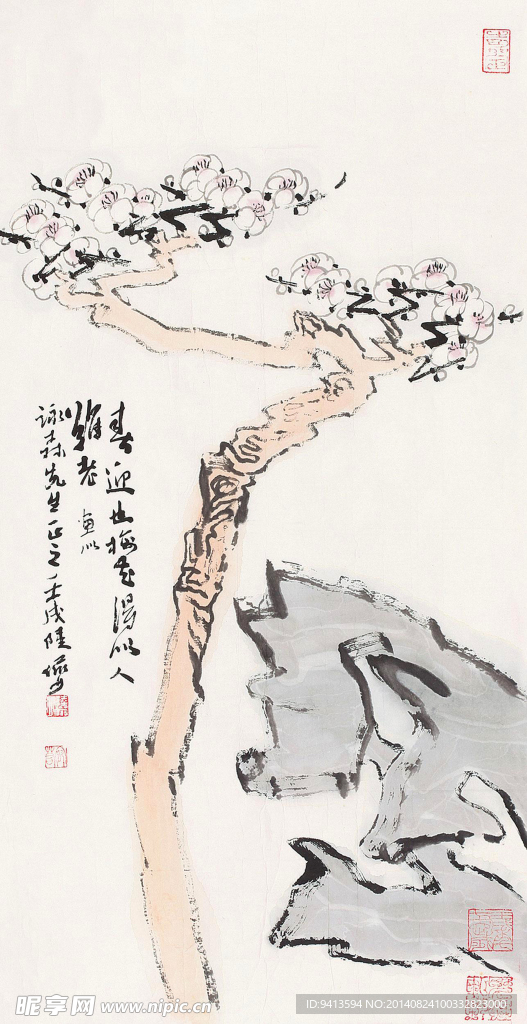 春迎也梅花得似人
难老 画以
咏森先生正之 壬戌陆俨少
昵享网 www.nipic.cn
ID:9413594 NO:20140824100332823000